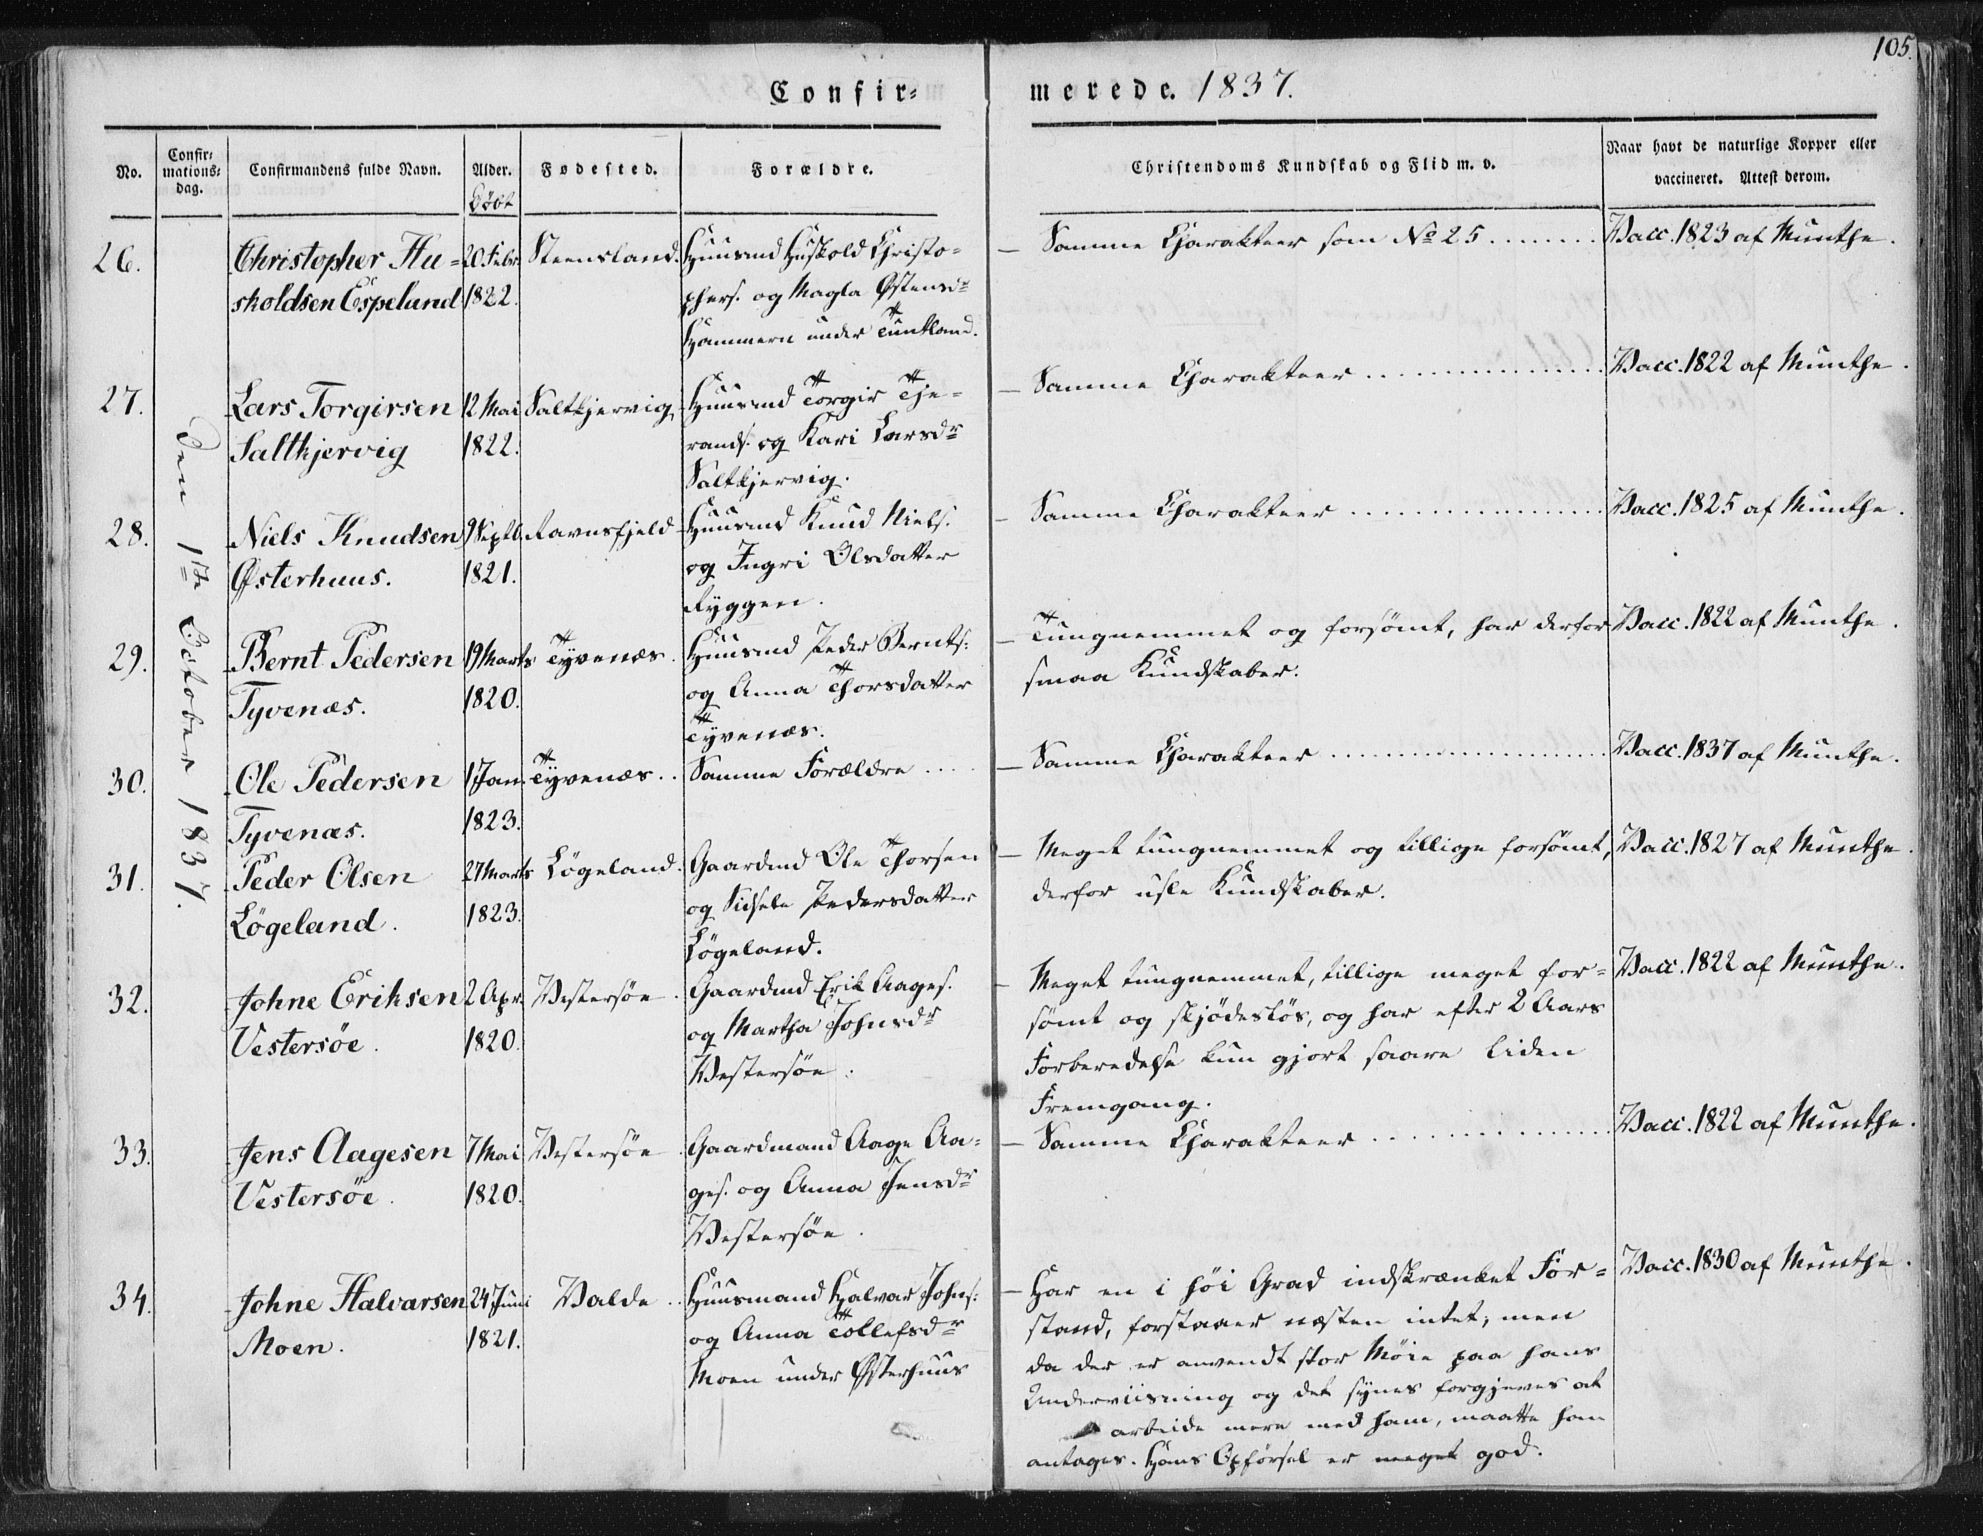 105.
Confir=
merede. 1837.
No.
Confir=
mations=
dag.
Confirmandens fulde Navn.
Alder.
Døbt
Fødested.
Forældre.
Christendoms Kundskab og Flid m. v.
Naar havt de naturlige Kopper eller
vaccineret. Attest derom.
Den 1ste October 1837.
26.
Christopher Hu=
skoldsen Espelund
20 Febr.
1822.
Steensland.
Huusmd Huskold Christo=
phers. og Magla Østensdr
Hammern under Tuntland.
— Samme Charakteer som No 25 ........
Vacc. 1823 af Munthe.
27.
Lars Torgirsen
Saltkjervig
12 Mai
1822.
Saltkjervig
Huusmd Torgir Tje=
rands. og Kari Larsdr
Saltkjervig.
— Samme Charakteer ................
Vacc. 1822 af Munthe.
28.
Niels Knudsen
Østerhuus.
9 Septb.
1821.
Ravnsfjeld
Huusmd Knud Niels.
og Ingri Olsdatter
Ryggen.
— Samme Charakteer ................
Vacc. 1825 af Munthe.
29.
Bernt Pedersen
Tyvenæs.
19 Marts
1820.
Tyvenæs.
Huusmd Peder Bernts:
og Anna Thorsdatter
Tyvenæs.
— Tungnemmet og forsømt, har derfor
smaa Kundskaber.
Vacc. 1822 af Munthe.
30.
Ole Pedersen
Tyvenæs.
1 Jan.
1823.
Tyvenæs..
Samme Forældre ....
— Samme Charakteer ................
Vacc. 1837 af Munthe.
31.
Peder Olsen
Løgeland.
27 Marts
1823.
Løgeland.
Gaardmd Ole Thorsen
og Sidsele Pedersdatter
Løgeland.
— Meget tungnemmet og tillige forsømt,
derfor usle Kundskaber.
Vacc. 1827 af Munthe.
32.
Johne Eriksen
Vestersøe.
2 Apr.
1820.
Vestersøe.
Gaardmd Erik Aages.
og Martha Johnsdr
Vestersøe.
— Meget tungnemmet, tillige meget for=
sømt og skjødesløs, og har efter 2 Aars
Forberedelse kun gjort saare liden
Fremgang.
Vacc. 1822 af Munthe.
33.
Jens Aagesen
Vestersøe.
7 Mai
1820.
Vestersøe.
Gaardmand Aage Aa=
ges. og Anna Jensdr
Vestersøe.
— Samme Charakteer ................
Vacc. 1822 af Munthe.
34.
Johne Halvarsen
Moen.
24 Juni
1821.
Valde..
Huusmand Halvar Johns:
og Anna Tollefsdr
Moen under Østerhuus
— Har en i høi Grad indskrænket For=
stand, forstaaer næsten intet; men
da der er anvendt stor Møie paa hans
Underviisning og det synes forgjeves at
arbeide mere med ham, maatte han
antages. Hans Opførsel er meget god.
Vacc. 1830 af Munthe.